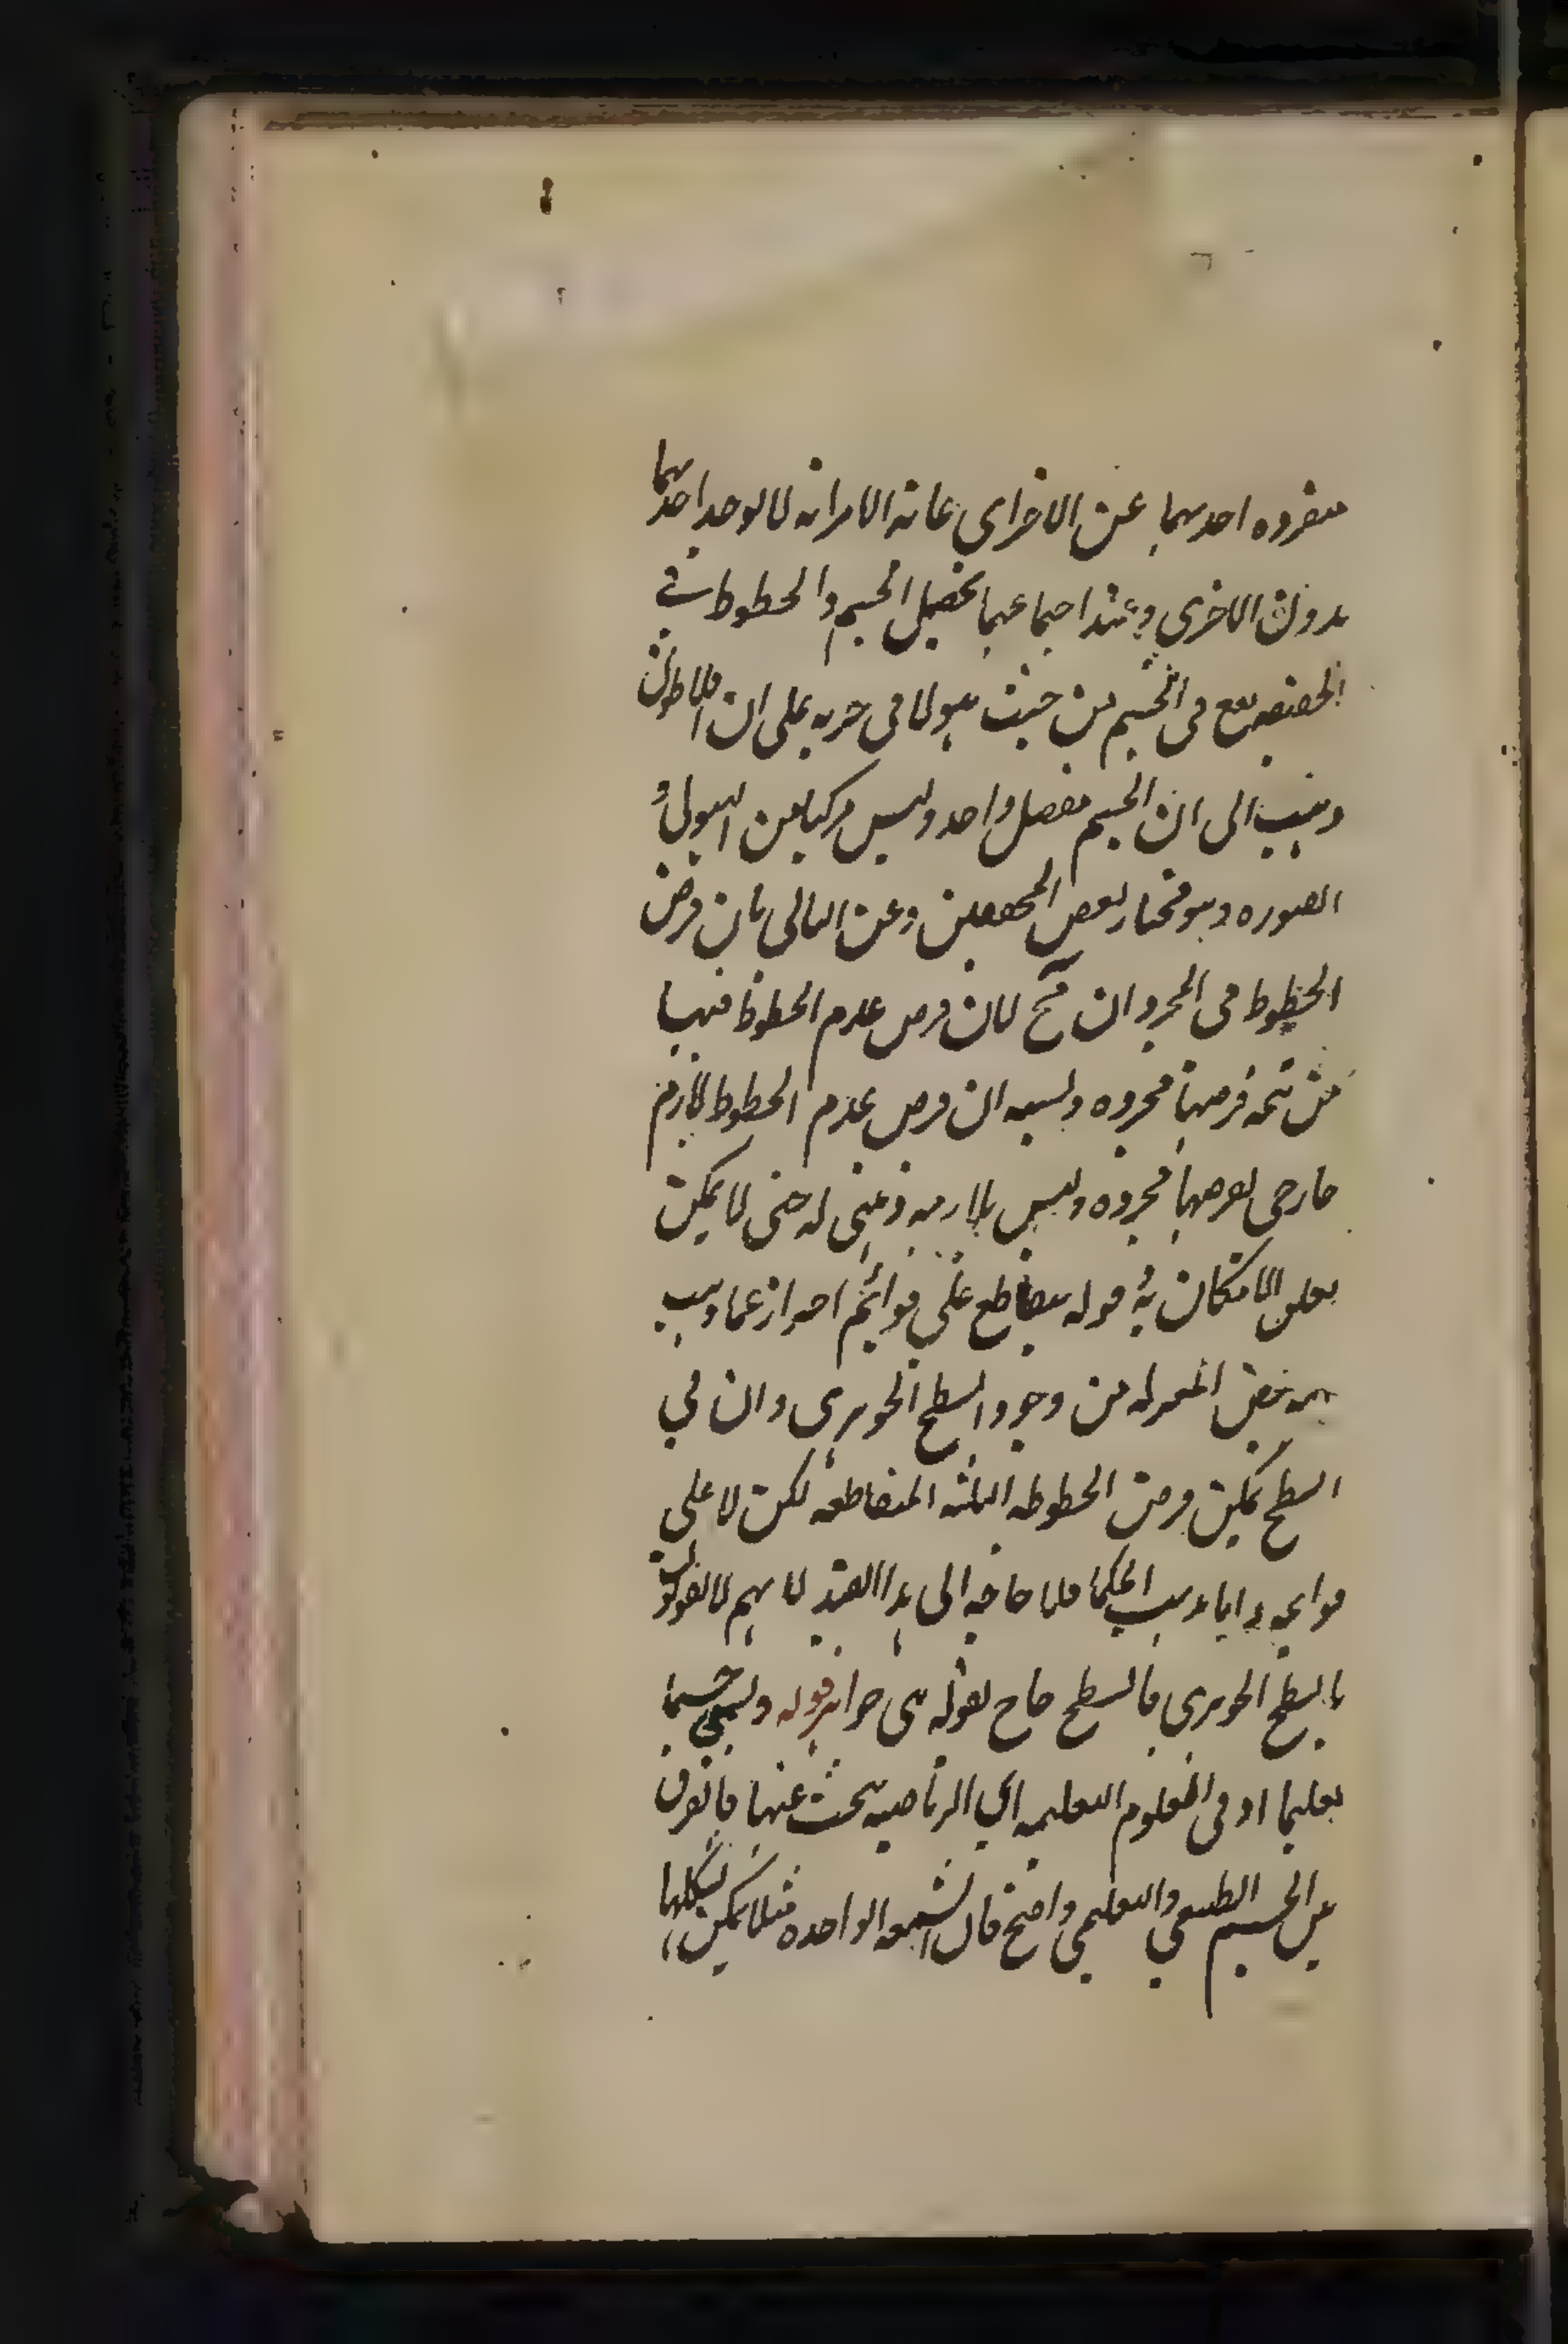 منفرده احدیهما عن الاخرای غایة الامر انه لا یوجد احدیهما
بدون الاخری وعند اجتماعهما یحصل الجسم والخطوط فی
الحقیقه یقع فی الجسم من حیث هو لا فی جزیه علی ان افلاطون
ذهب الی ان الجسم متصل واحد ولیس مرکبا من الهیولی و
الصوره وهو مختار بعض المحققین وعن الثانی بان فرض
الخطوط فی المجرد ان صح لان فرض عدم الخطوط فیها
من تتمه فرضها مجرده ولیس ان فرض عدم الخطوط لازم
خارجی لفرضها مجرده ولیس بلازمه ذهنی له حتی لا یمکن
تعلق الامکان به قوله یتقاطع علی قوائم احتراز عما ذهب
الیه بعض المعتزله من وجود السطح الجوهری وان فی
السطح یمکن فرض الخطوطه الثلثه المتقاطعه لکن لا علی
قوایم واما مذهب الحکما فلا حاجه الی هذا القید لانهم لا یقولون
بالسطح الجوهری فالسطح خارج بقوله هی جواهر قوله ولیسمی جسما
تعلیمیا اذ فی العلوم التعلیمیه ای الریاضیه یبحث عنها فالفرق
بین الجسم الطبیعی والتعلیمی واضح فان الشمعه الواحده مثلا یمکن تشکلها